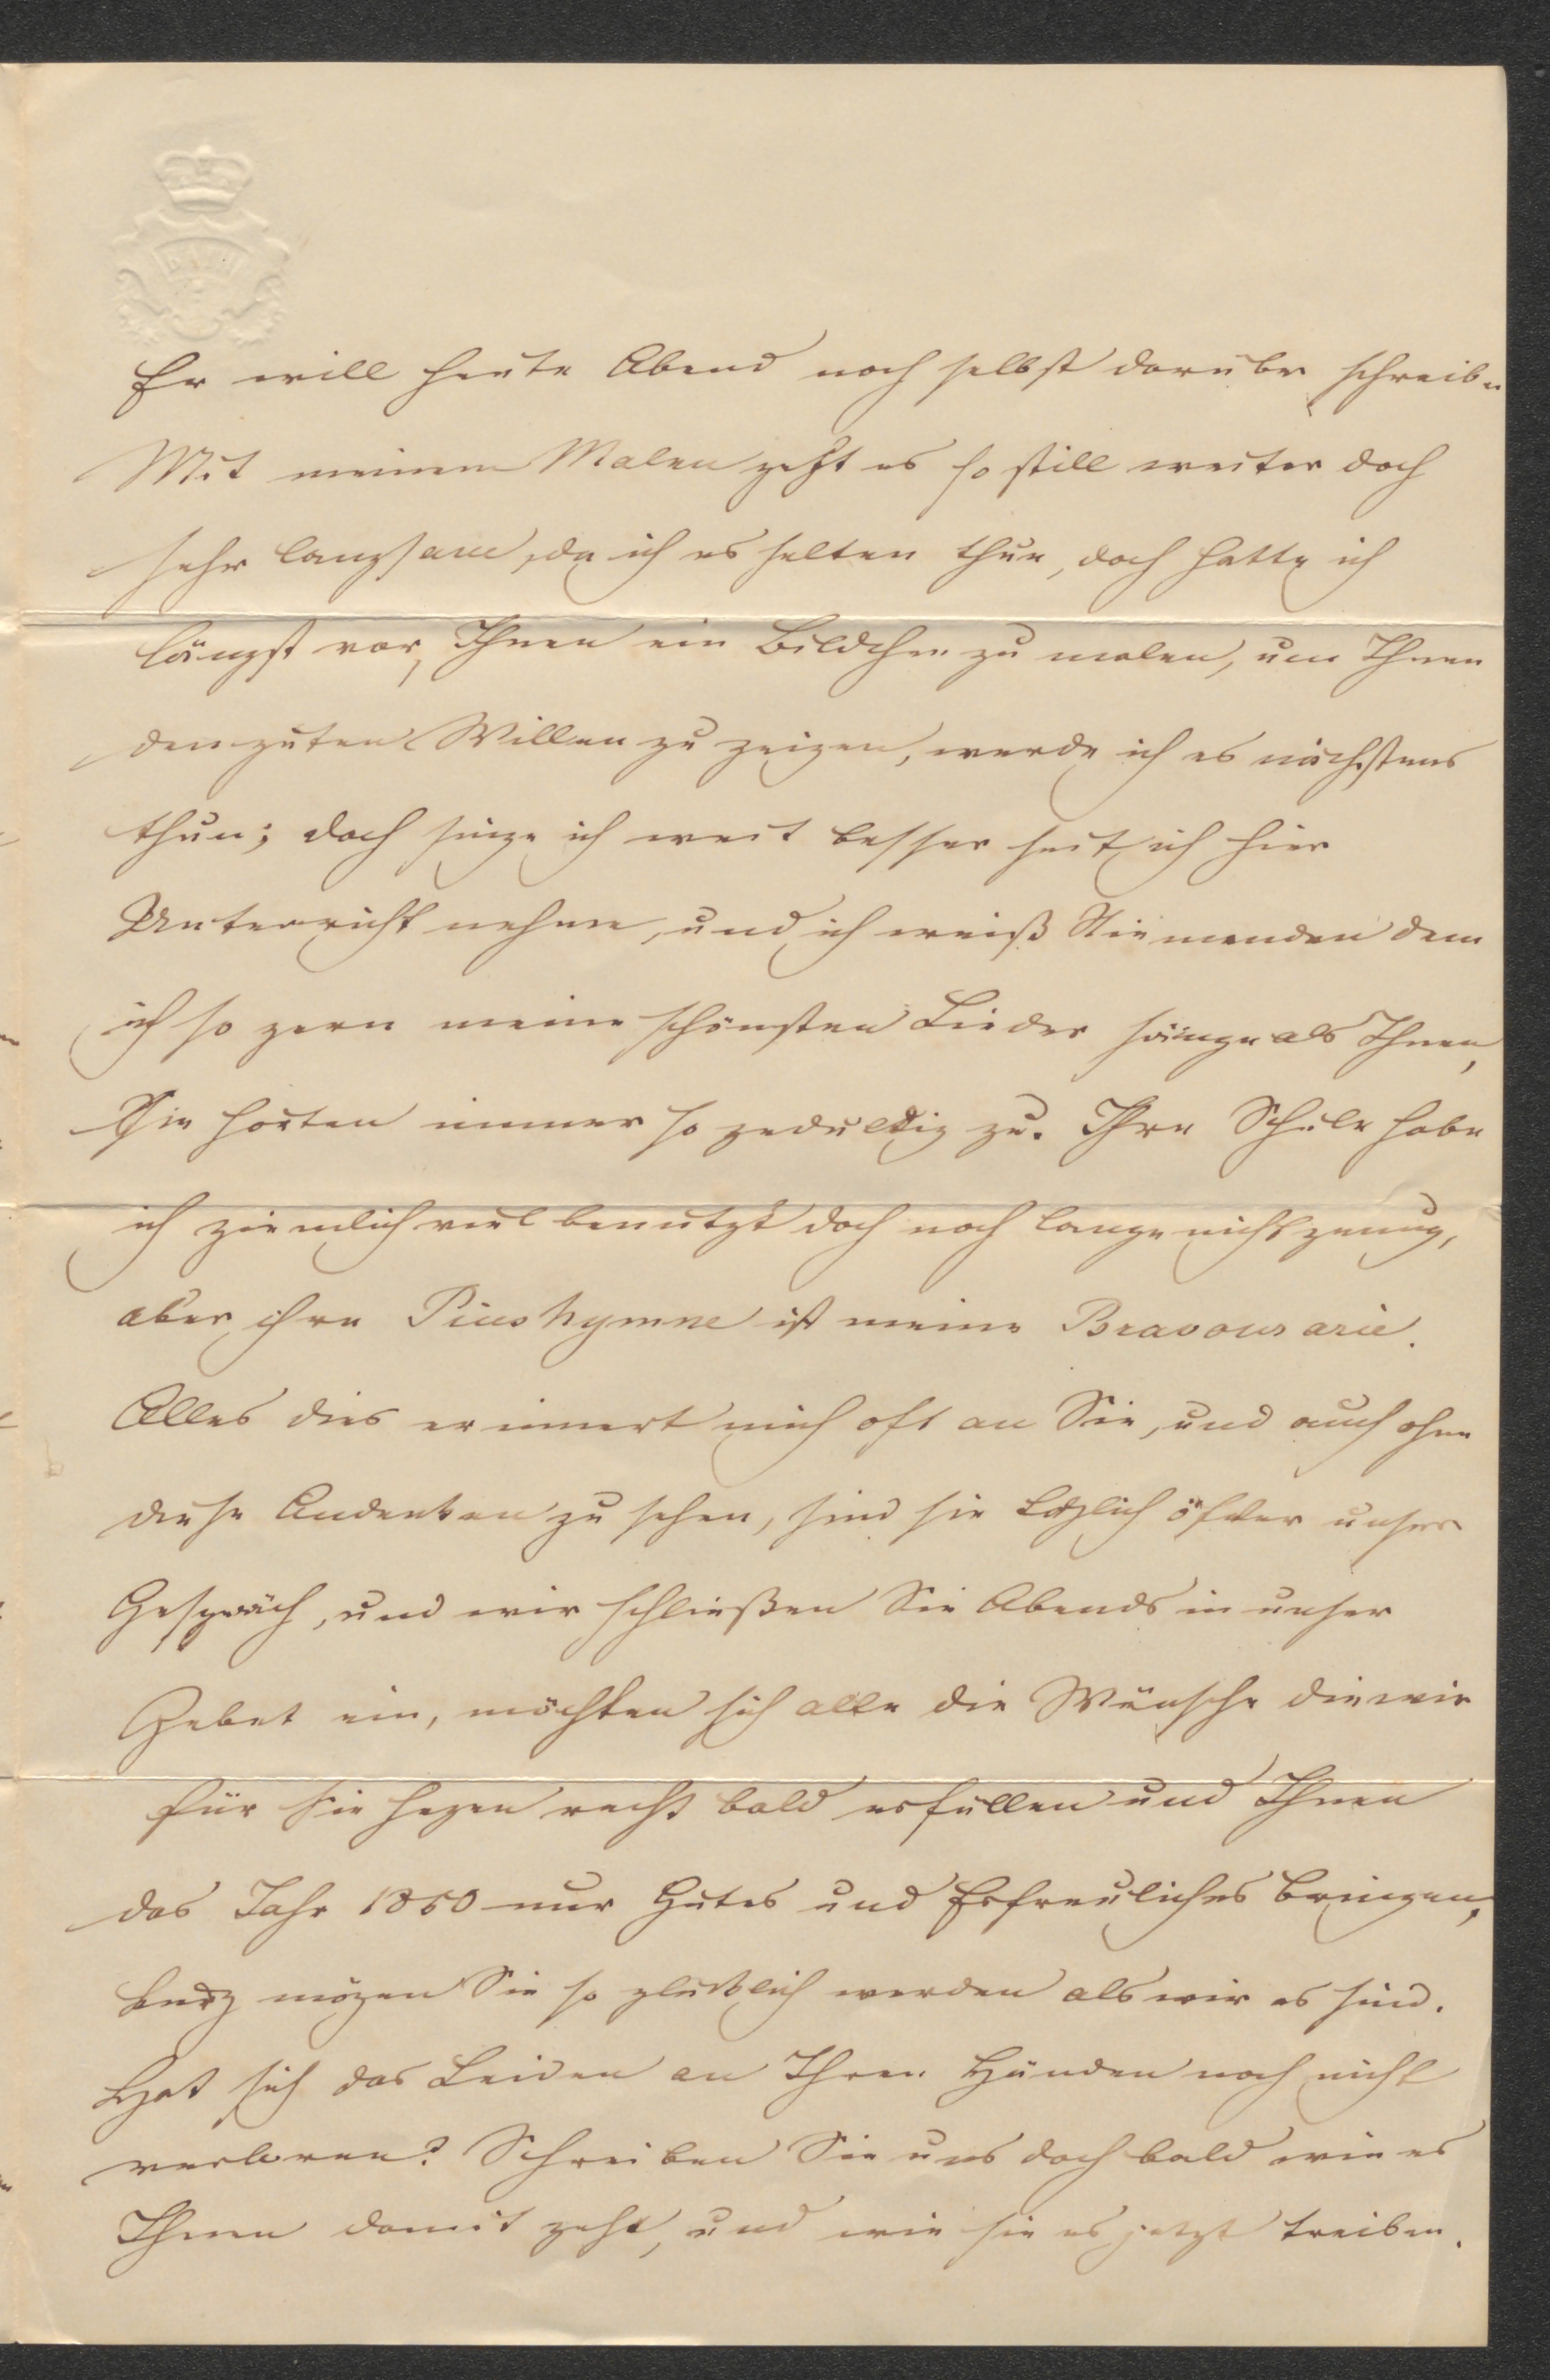 Er will heute Abend noch selbst darüber schreiben
Mit meinem Malen geht es so still weiter doch
sehr langsam, da ich es selten thue, doch hatte ich
längst vor, Ihnen ein Bildchen zu malen, um Ihnen
den guten Willen zu zeigen, werde ich es nächstens
thun; doch singe ich weit besser seit ich hier
Unterricht nehme, und ich weiß Niemanden dem
ich so gern meine schönsten Lieder sänge als Ihnen,
Sie hörten immer so geduldig zu. Ihre Schule habe
ich ziemlich viel benutzt doch noch lange nicht genug,
aber ihre Piushymne ist meine Bravourarie.
Alles dies erinnert mich oft an Sie, und auch ohne
diese Andenken zu sehen, sind sie täglich öfter unser
Gespräch, und wir schließen Sie Abends in unser
Gebet ein, möchten sich alle die Wünsche die wir
für Sie hegen recht bald erfüllen und Ihnen
das Jahr 1850 nur Gutes und Erfreuliches bringen,
kurz mögen Sie so glücklich werden als wir es sind.
Hat sich das Leiden an Ihren Händen noch nicht
verloren? Schreiben Sie uns doch bald wie es
Ihnen damit geht, und wie sie es jetzt treiben.